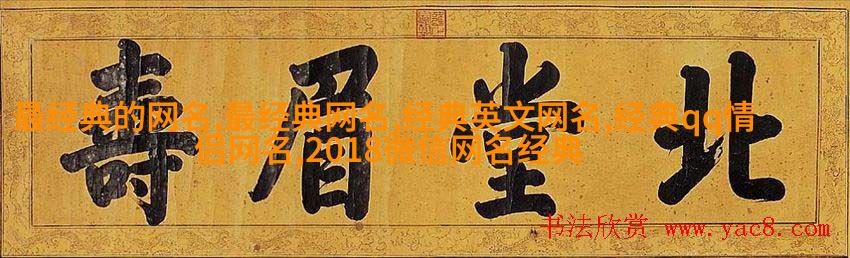 北堂眉壽
最经典的网名,最经典网名,经典英文网名,经典qq情
侣网名,2018微信网名经典
书法欣赏 www.yac8.com